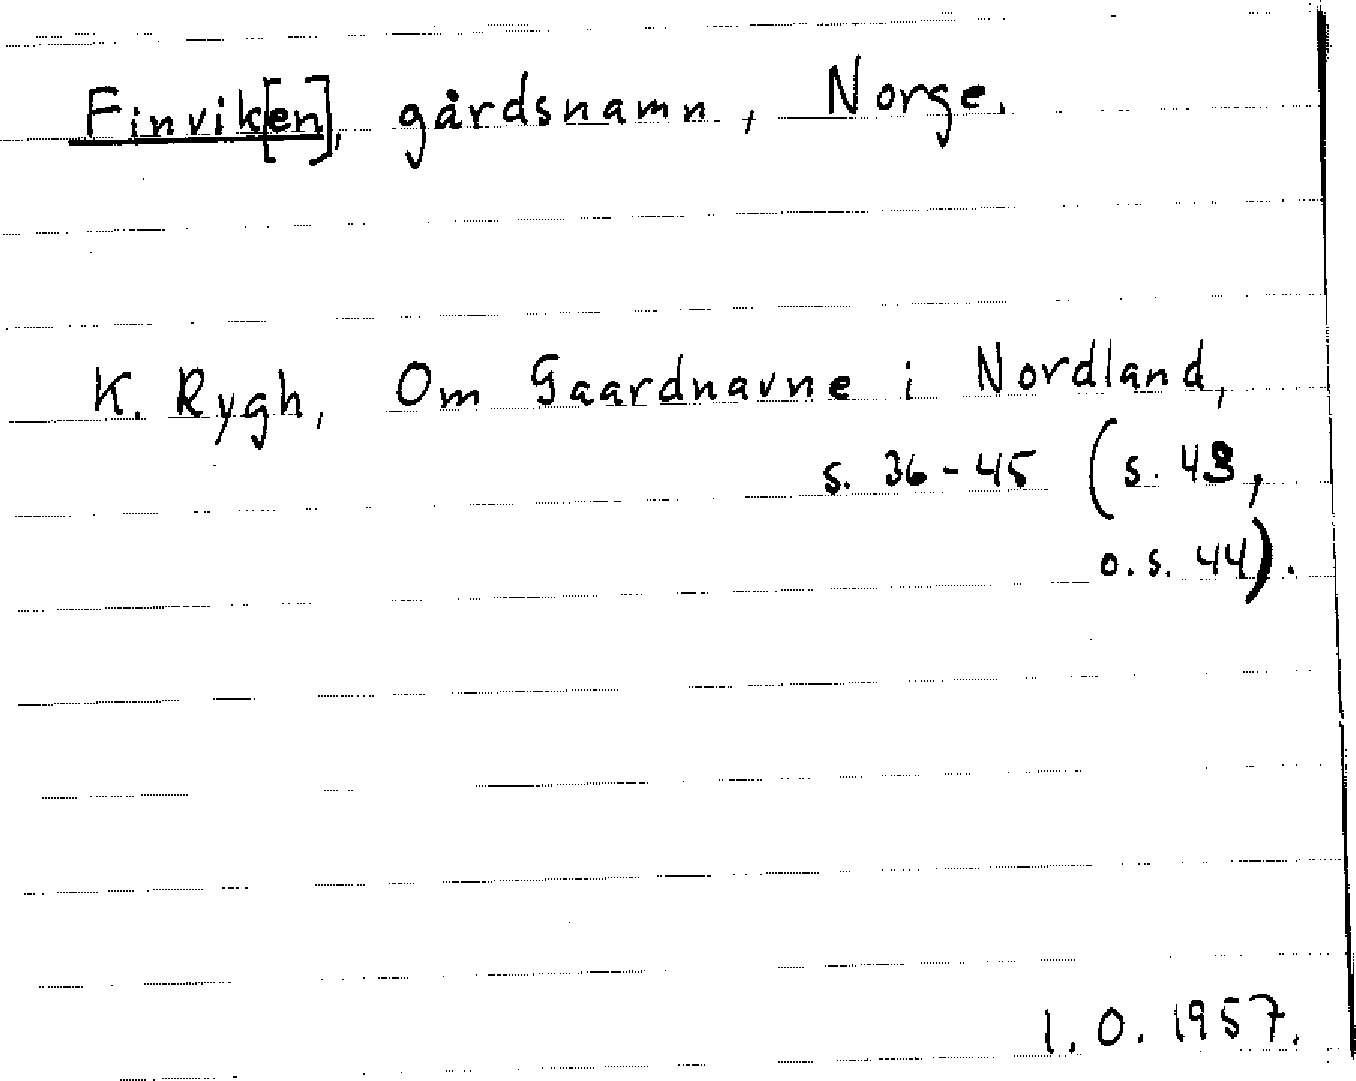 Finvik[en], gårdsnamn, Norge.
K. Rygh, Om Gaardnavne i Nordland,
s. 36-45 (s. 43,
o.s. 44).
I.O. 1957.